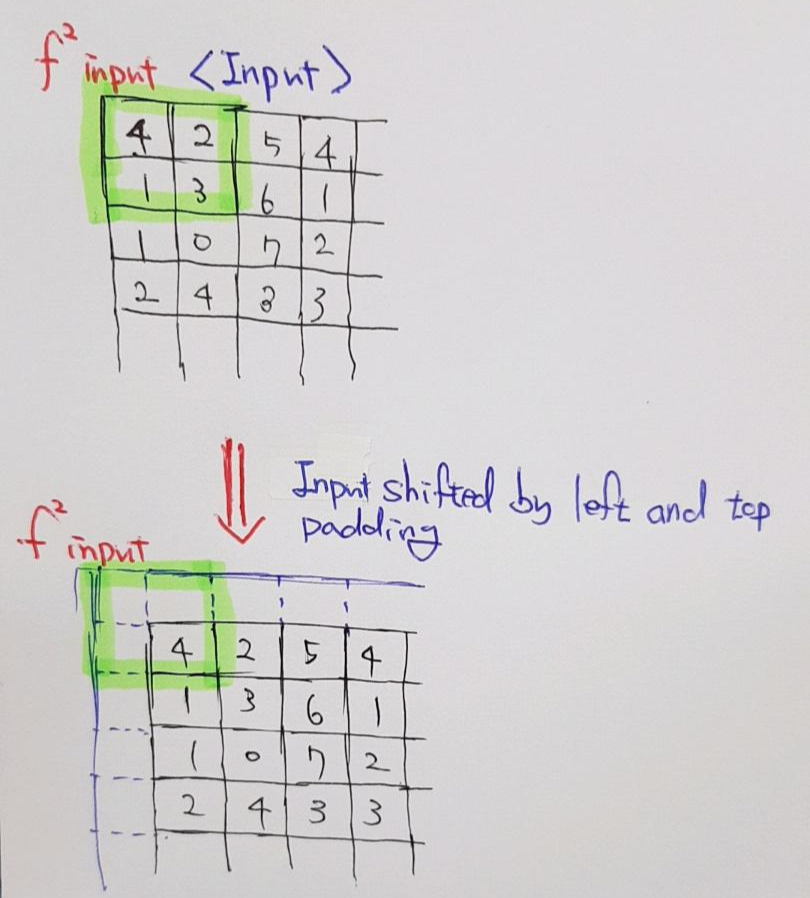 f² input <Input>
4 2 5 4
1 3 6 1
1 0 7 2
2 4 3 3
Input shifted by left and top
padding
f² input
4 2 5 4
1 3 6 1
1 0 7 2
2 4 3 3